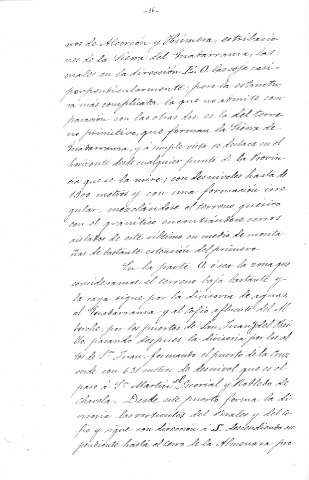 -16-
nos de Alcorcón y Húmera, estribacio
nes de la Sierra del Guadarrama, las
cuales en la dirección E. O. las roza casi
perpendicularmente; pero la estructu
ra más complicada, la que no admite com
paración con las otras dos es la del terre
no primitivo, que forman la Sierra de
Guadarrama, y á simple vista se destaca en el
horizonte desde cualquier punto de la Provin
cia que se la mire; con desniveles hasta de
1500 metros y con una formación irre
gular, mezclándose el terreno gneisico
con el granítico encontrándose cerros
aislados de este último en medio de monta
ñas de bastante estensión del primero
En la parte O. ó sea la zona que
consideramos, el terreno baja bastante y
la raya sigue por la divisoria de aguas,
el Guadarrama y el Cofio afluente del Al
berche, por los puertos de San Juan y del
pasando despues la divisoria por los al
tos de Sn. Juan, formando el puerto de la Cruz
verde con 631 metros de desnivel que es el
paso á Sn. Martin, Escorial y Robledo de
Chavela. Desde este puerto forma la di
visoria las vertientes del Perales y del Co
fio y sigue con dirección á S. descendiendo su
pendiente hasta el cerro de la Almenara pro